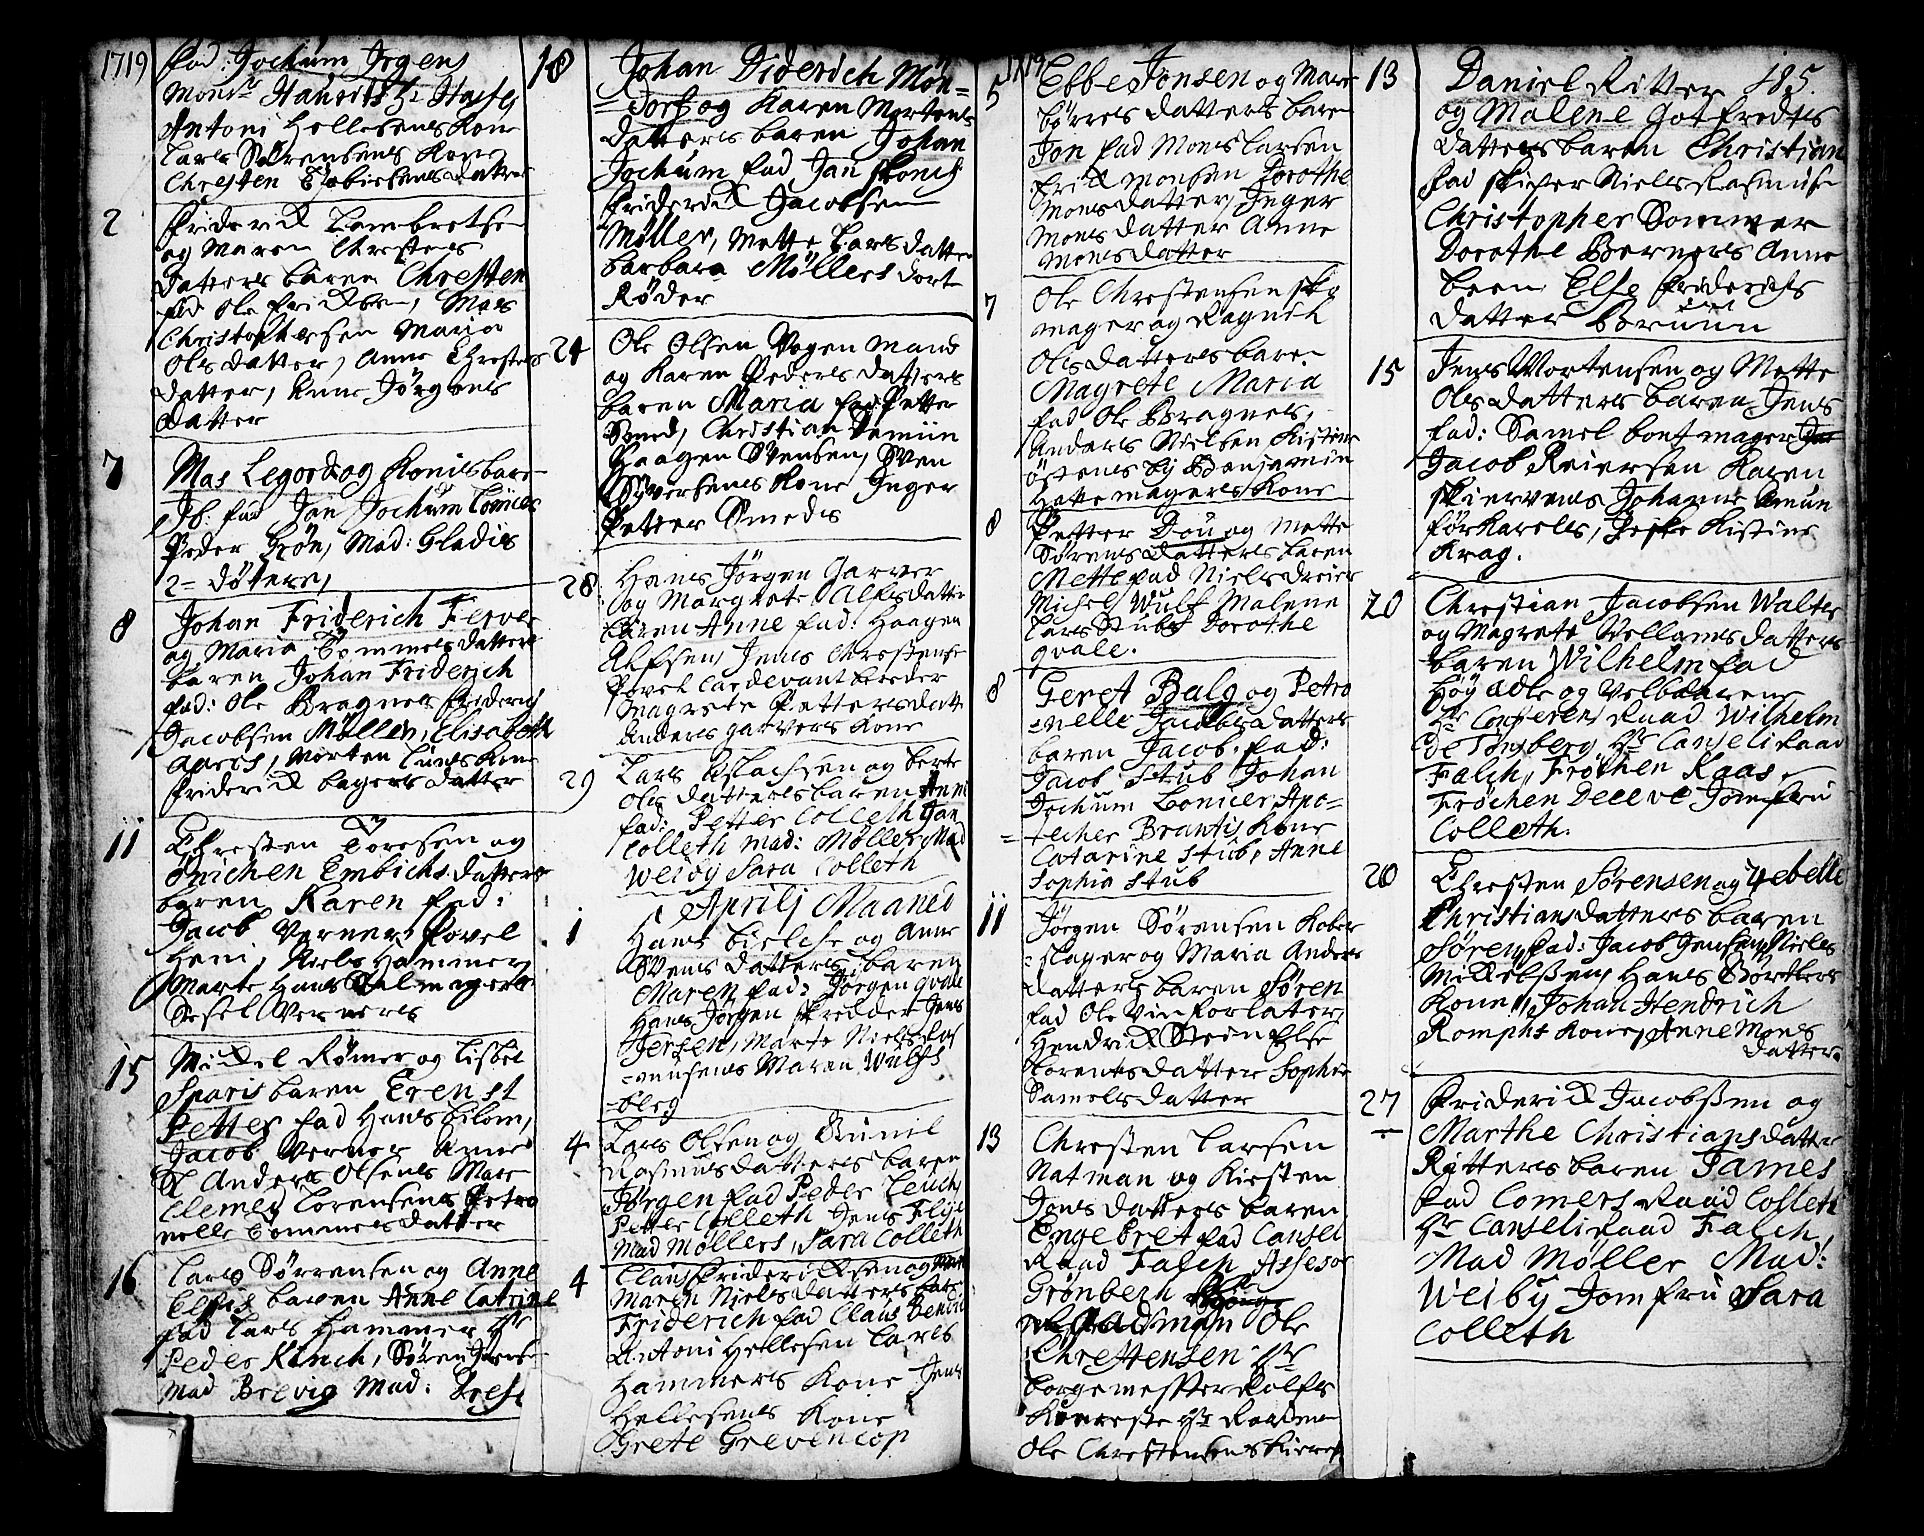 1719
fad: Jochum Jrgens
Antoni Hellesens Kone
Lars Sørensens Kone
Chresten Tobiesens datter
2
Friderick Lambretsen
og Maren Chrestens
datters baren Chresten
fad Ole fricksen, Mas
Christophersen Maria
Olsdatter, Anne Chrestens
datter, Anne Jörgens
datter
7
Mas Legord og Konis bare
Jb: fad Jan Jochum Lonicer
Peder Grön, Mad: Gladies
2= døtere,
8
Johan Friderich Ferver
og Maria Tommesdatters
baren Johan Friderich
fad: Ole Bragnes friderich
Jacobsen Møller, Elisabeth
Aars, Morten Lunds Kone
friderick bagers datter
11
Chresten Toresen og
Snichen Embichs datters
baren Karen fad:
Jacob Verner Povel
Heni, Niels Hammer,
Marte Hans
Sesel Verners
15
Mickel Rømer og Lisbet
Sparis baren Erenst
Petter fad Hans
Jacob Verner Anne
Anders Olsens Mare
Clemed Lorensens Petro
nelle Tommesdatter
16
Lars Sørrensen og Anne
Elfis baren Anne Catrine
fad Lars Hammer Hr
Peder Kinch, Søren Jense
Mad Brevig Mad: Drese
18
Johan Diderich Mon=
=Dorf og Karen Mortens
datters baren Johan
Jochum fad Jan
friderick Jacobsen
Møller, Mette Lars datter
barbara Møllers dort
Røder
24
Ole Olsen Vogenmand
og Karen Peders datters
baren Maria fad Petter
Smed, Christian
Haagen Svensen, Sven
Syversens Kone Jnger
Petter Smeds
28
Hans Jörgen Garver
og Margrete Alfsdatter
baren Anne fad: Haagen
Alfsen, Jens Chrestense
Povel
Magrete Pettersdatt
Anders garvers Kone
29
Lars Aslachsen og berte
Olsdatters baren Anne
fad: Petter Colleth Jan
Colleth mad: Møller, Mad
Weiby Sara Colleth
Aprilj Maaned
1
Hans Bielche og Anne
Svens datters baren
Maren fad: Jörgen qvale
Hans Jörgen Skredder Jens
Jersen, Marte Niels
Maren Wulfs
=berg
4
Lars Olsen og Gunil
Rasmusdatters baren
Jörgen fad Peder Leuch
Petter Colleth Jens Flye
Mad Møllers, Sara Colleth
4
Claus fridericksen og
Maren Niels datters
Friderich fad Claus
Antoni Hellesen Lars
Hammers Kone Jens
Hellesens Kone
Grete Grevencop
1719
5
Ebbe Jonsen og Mare
börresdatters baren
Jon fad Mons Larsen
frick Monsen Dorothe
Monsdatter, Jnger
Monsdatter Anne
Monsdatter
7
Ole Chrestensen Sko
mager og Ragnil
Olsdatters baren
Magrete Maria
fad Ole Bragnes,
Anders Nielsen Kistine
Benjamin
Hattemagers Kone
8
Petter Dou og Mette
Sørensdatters baren
Mette fad Niels Dreier
Michel Wulf Malene
Lars Stubs Dorothe
qvale.
8
Geret Balg og Petro
=nelle Jacobs datters
baren Jacob. fad:
Jacob Stub Johan
Jochum Lonicer Apo=
=techer Brantis Kone
Catarine Stub, Anne
Sophia Stub
11
Jörgen Sørensen Kober
=slager og Maria Anders
datters baren Søren
fad Ole Vinforlater,
Hendrick Stein Else
Lorentsdatter Sophie
Samelsdatter
13
Chresten Larsen
Natman og Kirsten
Jonsdatters baren
Engebret fad Cansel
Raad Falch Assesor
Grønbech
Gadman Ole
Chrestensen Hr
borgemester Rolfs
Ole Chrestensens
13
185.
Daniel Ritter
og Malene Gotfredts
datters baren Christian
fad Skiper Niels Rasmuse
Christopher Sommer
Dorothe Berners Anne
been Else friderichs
datter Bruun
15
Jens Mortensen og Mette
Olsdatters baren Jens
fad: Samel bontmager
Jacob Reiersen Karen
Skiervens Johanne Amun
för Karels, Kistine
Krag.
20
Chrestian Jacobsen Walter
og Magrete Vellams datters
baren Wilhelm fad
Høy Adle og Velbaarene
Hr Conferens Raad Wilhelm
de Tonsberg Hr Canseliraad
Falch, Frøchen Kaas,
Frøchen Deleve Jomfru
Colleth.
20
Chresten Sørensen og Zebelle
Christiansdatters baren
Søren fad: Jacob Jensen Niels
Mickelssen, Hans
Kone, Johan Hendrich
Romphs Kone, Anne Mons
datter.
27
Friderick Jacobssen og
Marthe Christians datter
Ritters baren James
fad Comers Raad Colleth
Hr Canseliraad Falch
Mad Møller Mad:
Weiby Jomfru Sara
Colleth